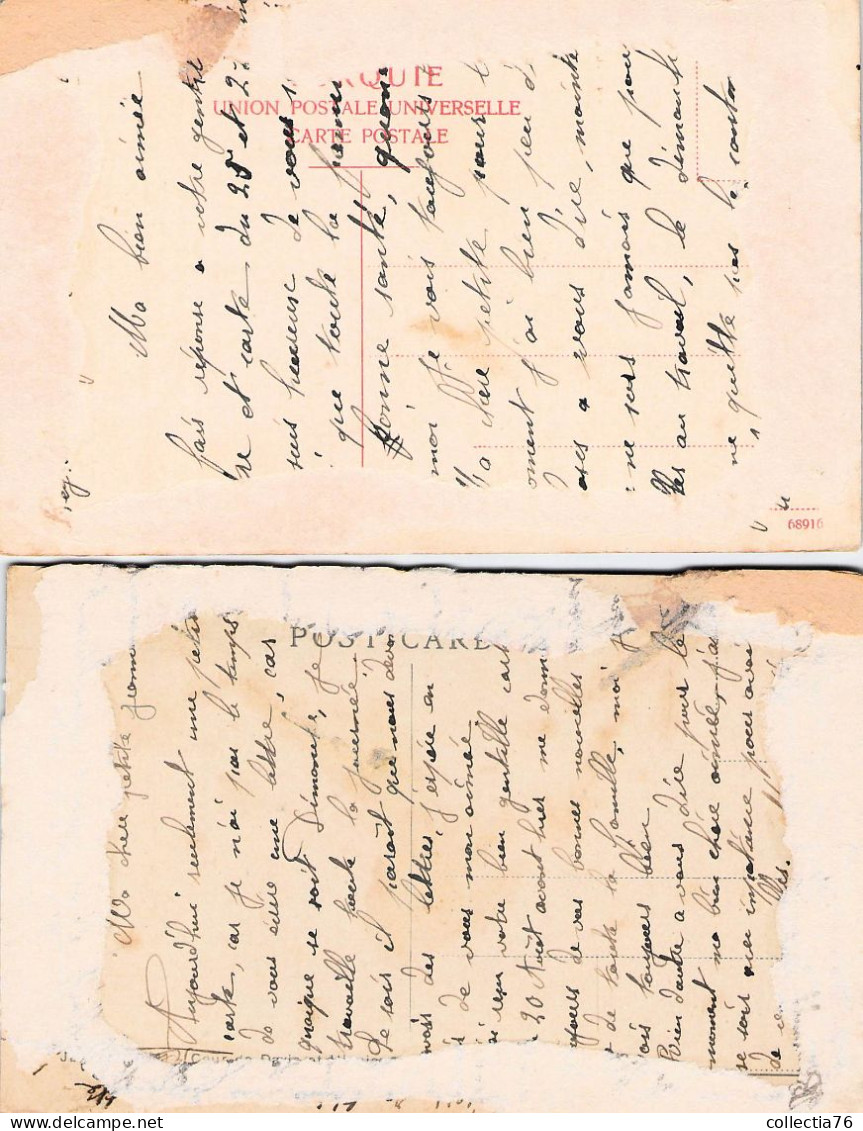 QUIE
UNION POSTALE UNIVERSELLE
CARTE POSTALE
Ma bien aimée
fais réponse a votre gentil
se et carte du 25 et 27
suis heureuse de vous
que toute la
bonne santé, quand
moi je vais toujours
Ma chère petite pour
oment j'ai bien peu d
oses a vous dire, mainte
ne suis jamais que pou
au travail, le dimanche
ne quitte pas le canton
68916
POST CARD
Ma chère petite
Aujourd'hui seulement une petite
carte, car je n'ai pas le temps
de vous écrire une lettre, car
quoique se soit Dimanche, je
travaille toute la journée.
Le soir il parait que nous devon
avoir des lettres, j'espère en
de vous mon aimée
reçu votre bien gentille cart
20 Août avant hier me donn
toujours de vos bonnes nouvelles
t de toute la famille, moi je
vais toujours bien
Rien d'autre a vous dire pour le
moment ma bien chère aimée, j'a
se soir avec impatience pour avoi
de
collectia76